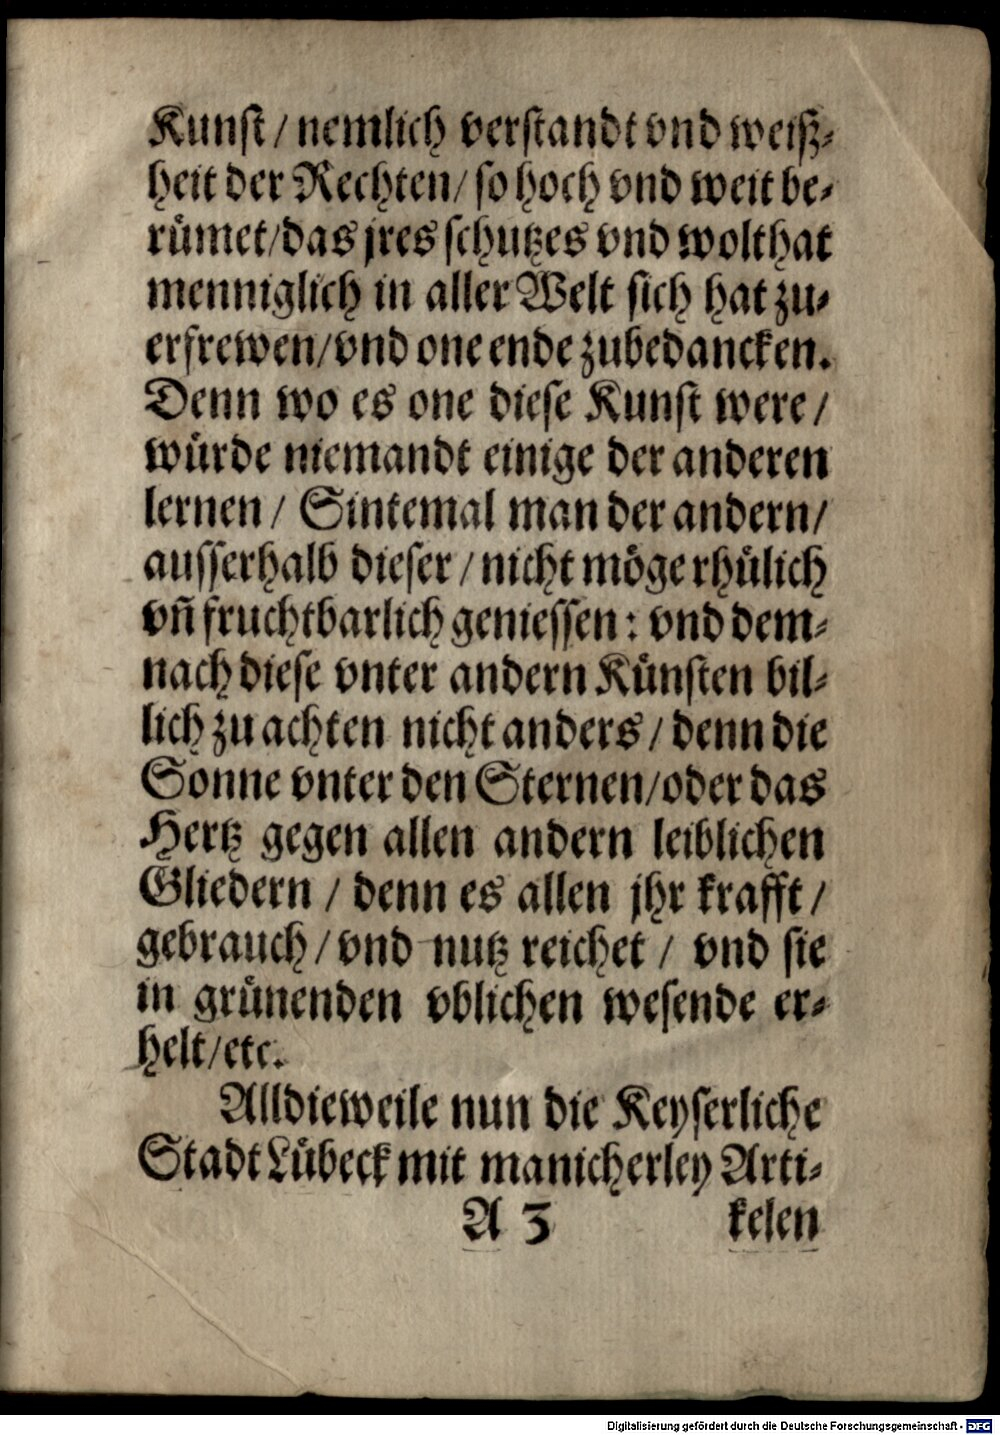 Kunst / nemlich verstandt vnd weiß-
heit der Rechten / so hoch vnd weit be-
rümet / das jres schutzes vnd wolthat
menniglich in aller Welt sich hat zu-
erfrewen / vnd one ende zubedancken.
Denn wo es one diese Kunst were /
würde niemandt einige der anderen
lernen / Sintemal man der andern /
ausserhalb dieser / nicht möge rhülich
vn̄ fruchtbarlich geniessen : vnd dem-
nach diese vnter andern Künsten bil-
lich zu achten nicht anders / denn die
Sonne vnter den Sternen / oder das
Hertz gegen allen andern leiblichen
Gliedern / denn es allen jhr krafft /
gebrauch / vnd nutz reichet / vnd sie
in grünenden vblichen wesende er-
helt / etc.
Alldieweile nun die Keyserliche
Stadt Lübeck mit manicherley Arti-
A 3 kelen
Digitalisierung gefördert durch die Deutsche Forschungsgemeinschaft - DFG